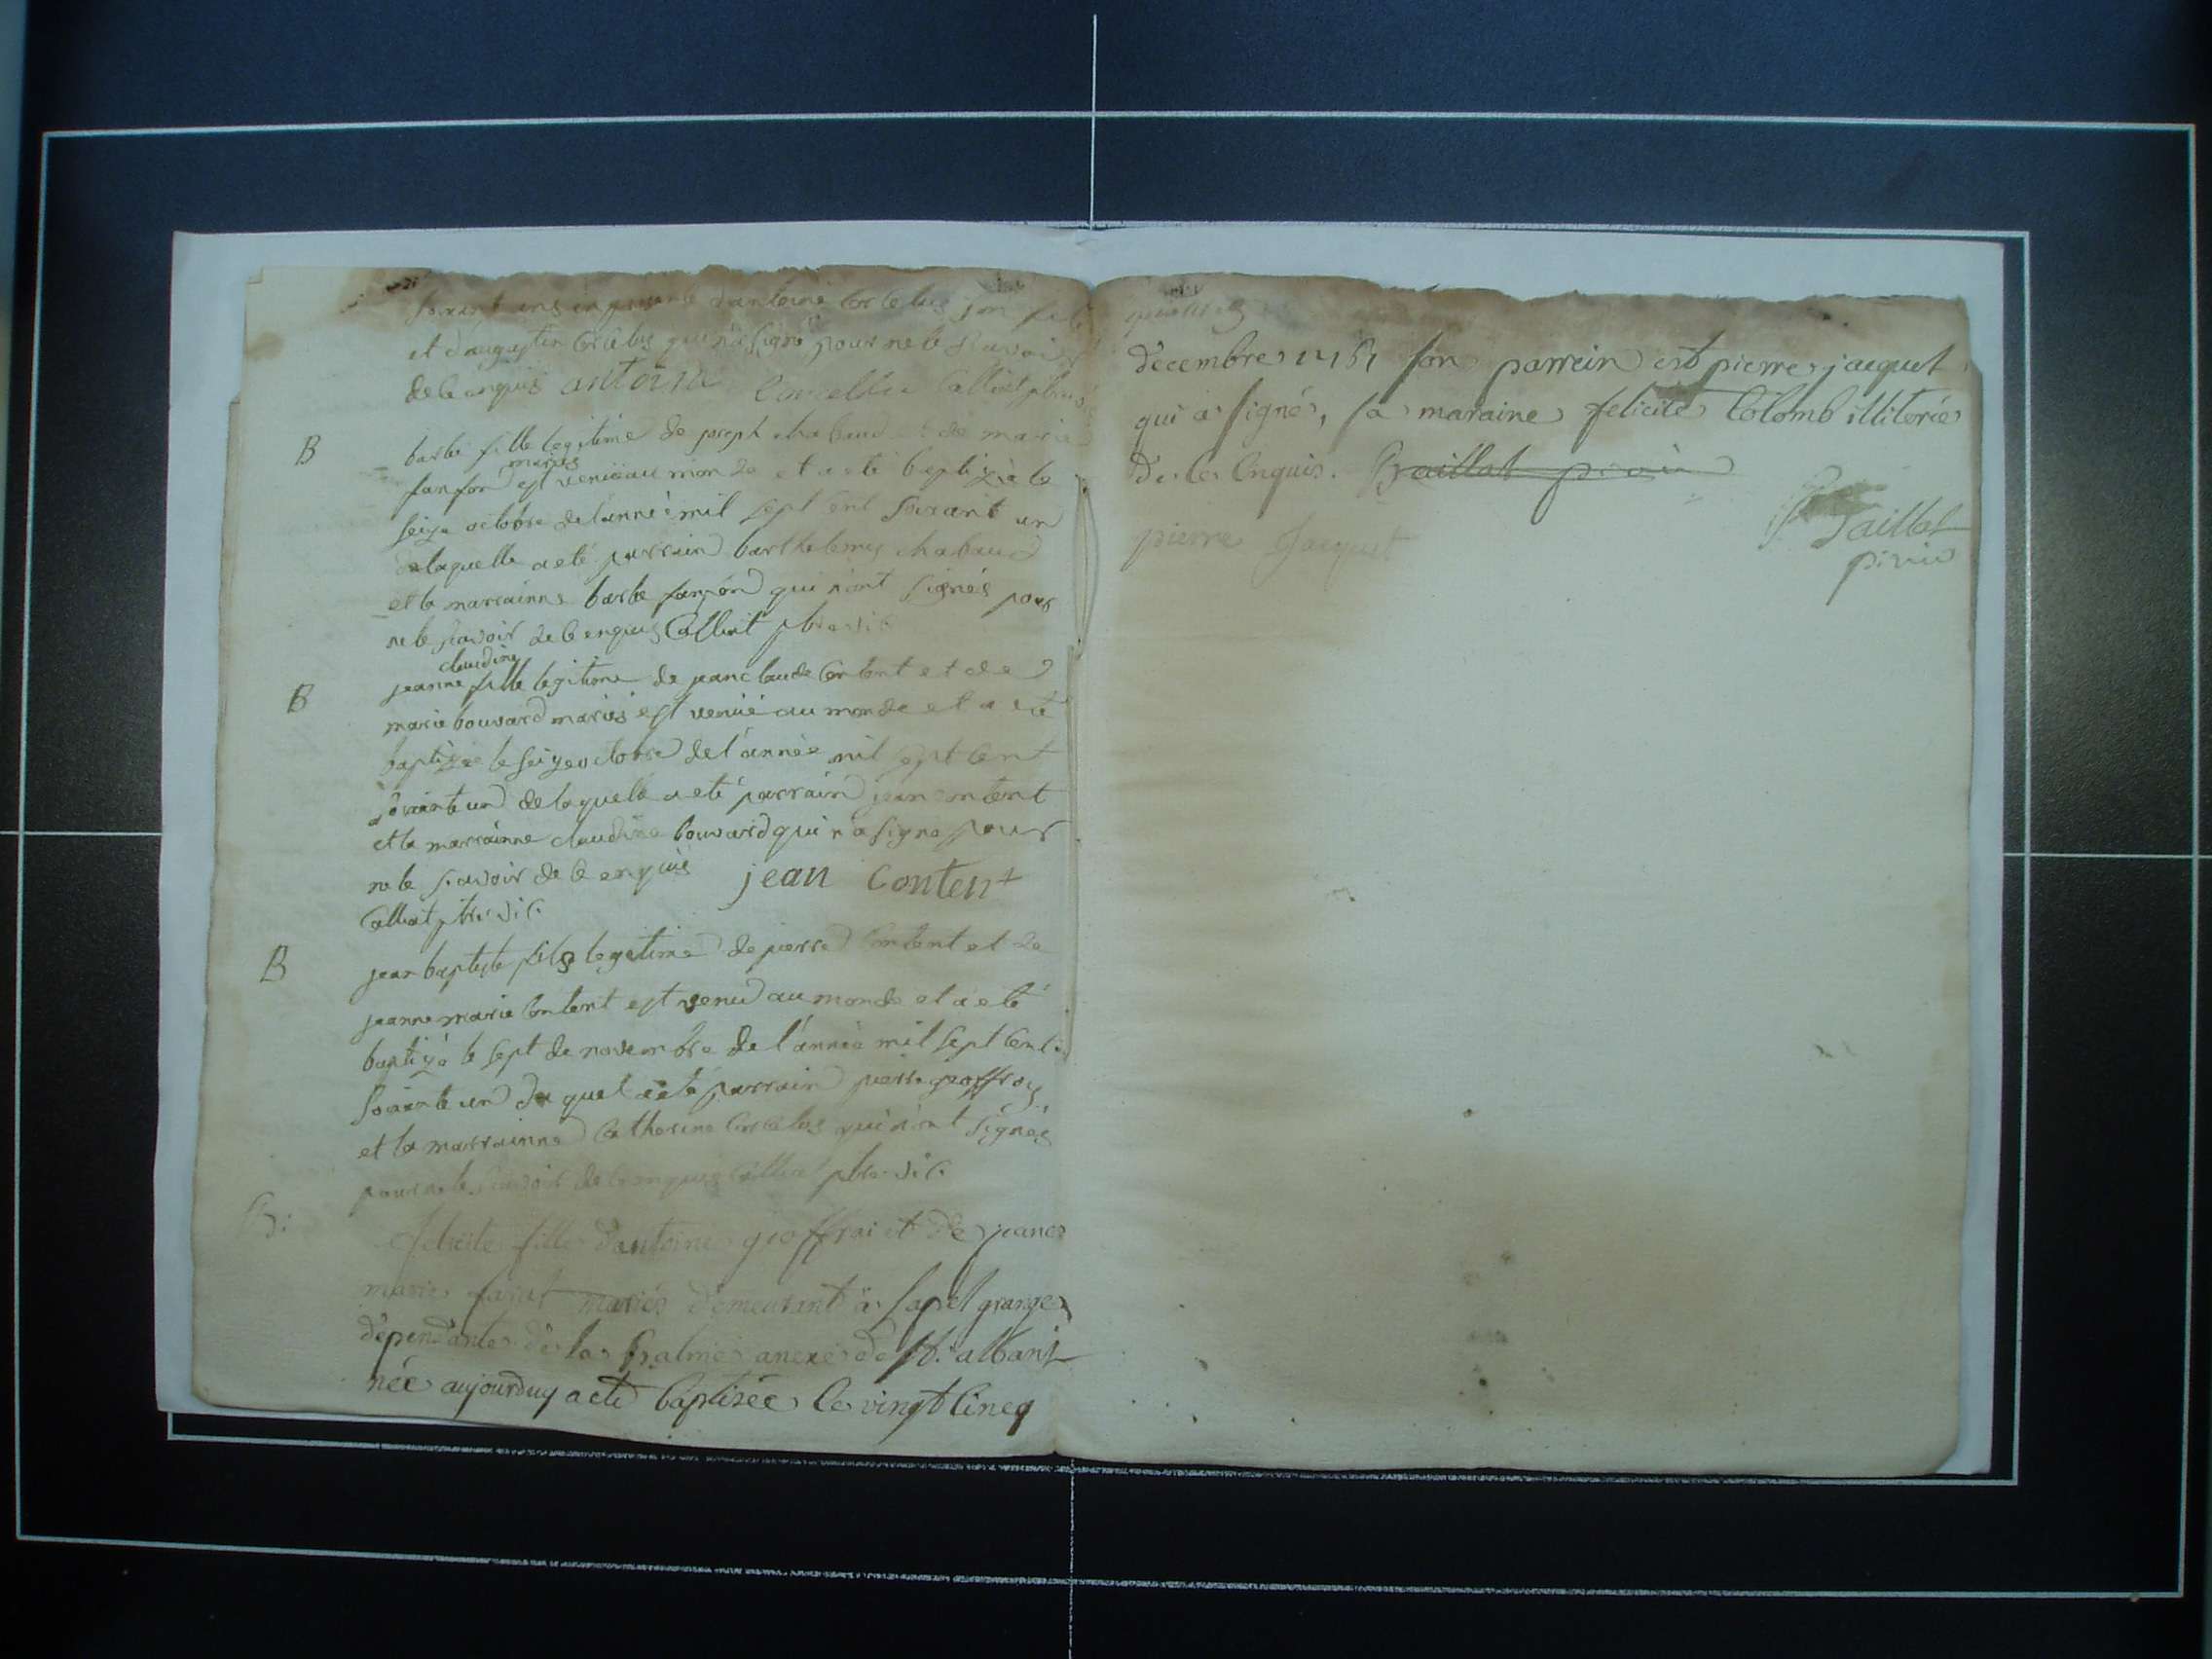 soixant ans en presente d'antoine Corcelus son fils
et d'augustin Corcelus qui n'a signé pour ne le scavoir
de le enquis antoine Corcellu Colliat ptre
B
barbe fille legitime de joseph chabaud et de marie
fanfon mariés est veniie au monde et a eté baptizée le
seize octobre de l'année mil sept cent soixant un
de laquelle a eté parrain barthelemy chabaud
et la marrainne barbe fanfon qui n'ont signés pour
ne le scavoir de le enquis Colliat ptre vic
B
jeanne claudine fille legitime de jeanclaude Content et de
marie bouvard mariés est veniie au monde et a eté
baptizée le seize octobre de l'année mil sept cent
soixante un de laquelle a eté parrain jean content
et la marrainne claudine bouvard qui n'a signé pour
ne le scavoir de le enquis jean Content
Colliat ptre vic
B
jean baptiste fils legitime de pierre Content et de
jeanne marie Content est venu au monde et a eté
baptizé le sept de novembre de l'année mil sept cent
soixante un du quel a eté parrain pierre geoffroy
et la marrainne Catherine Corcelus qui n'ont signés
pour ne le scavoir de le enquis Colliat ptre vic
B:
felicite fille d'antoine geoffrai et de jeane
marie mariés demeurant à sapel grange
dependante de la Balme anexe de St. albani
née aujourduy a eté baptisée le vingt cincq
decembre 1761 son parrein est pierre jacquet
qui a signé, sa maraine felicité Colomb illiterée
de ce enquis. Paillat
pierre Jacquet
Paillat